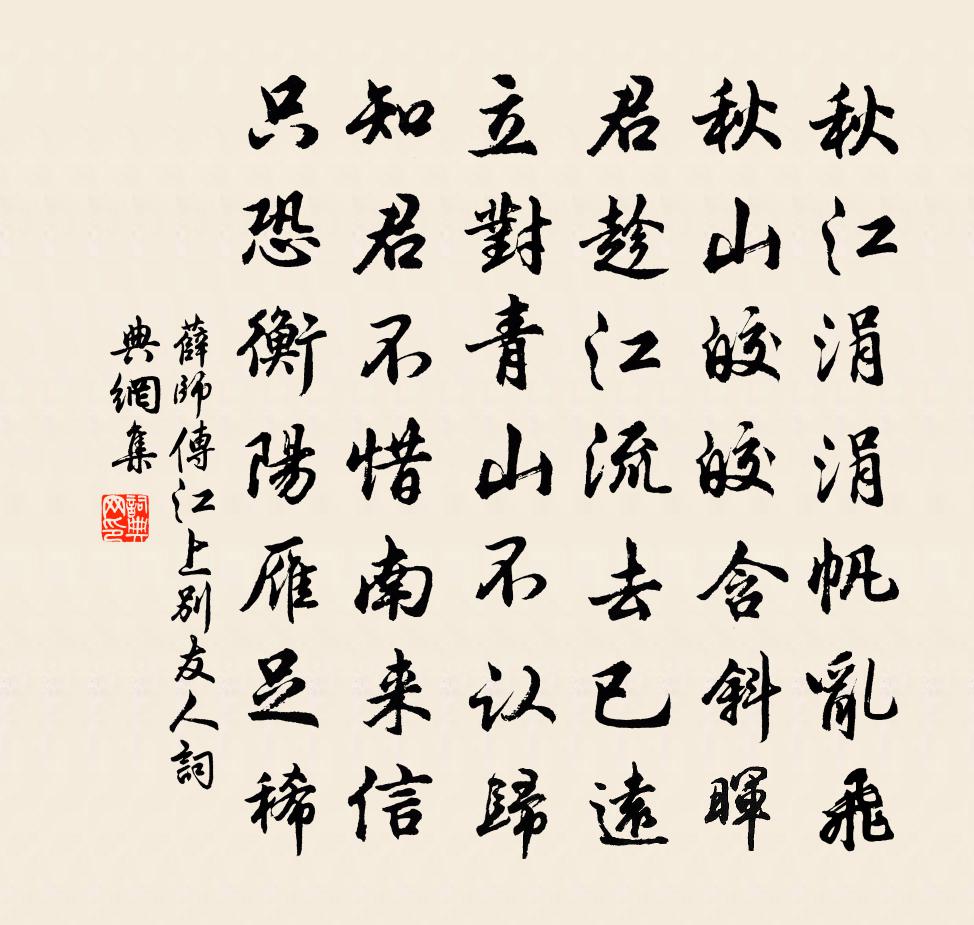 秋江涓涓帆亂飛
秋山皎皎含斜暉
君趁江流去已遠
立對青山不认歸
知君不惜南来信
只恐衡陽雁足稀
薛師傅江上別友人詞
典網集
詞典網印